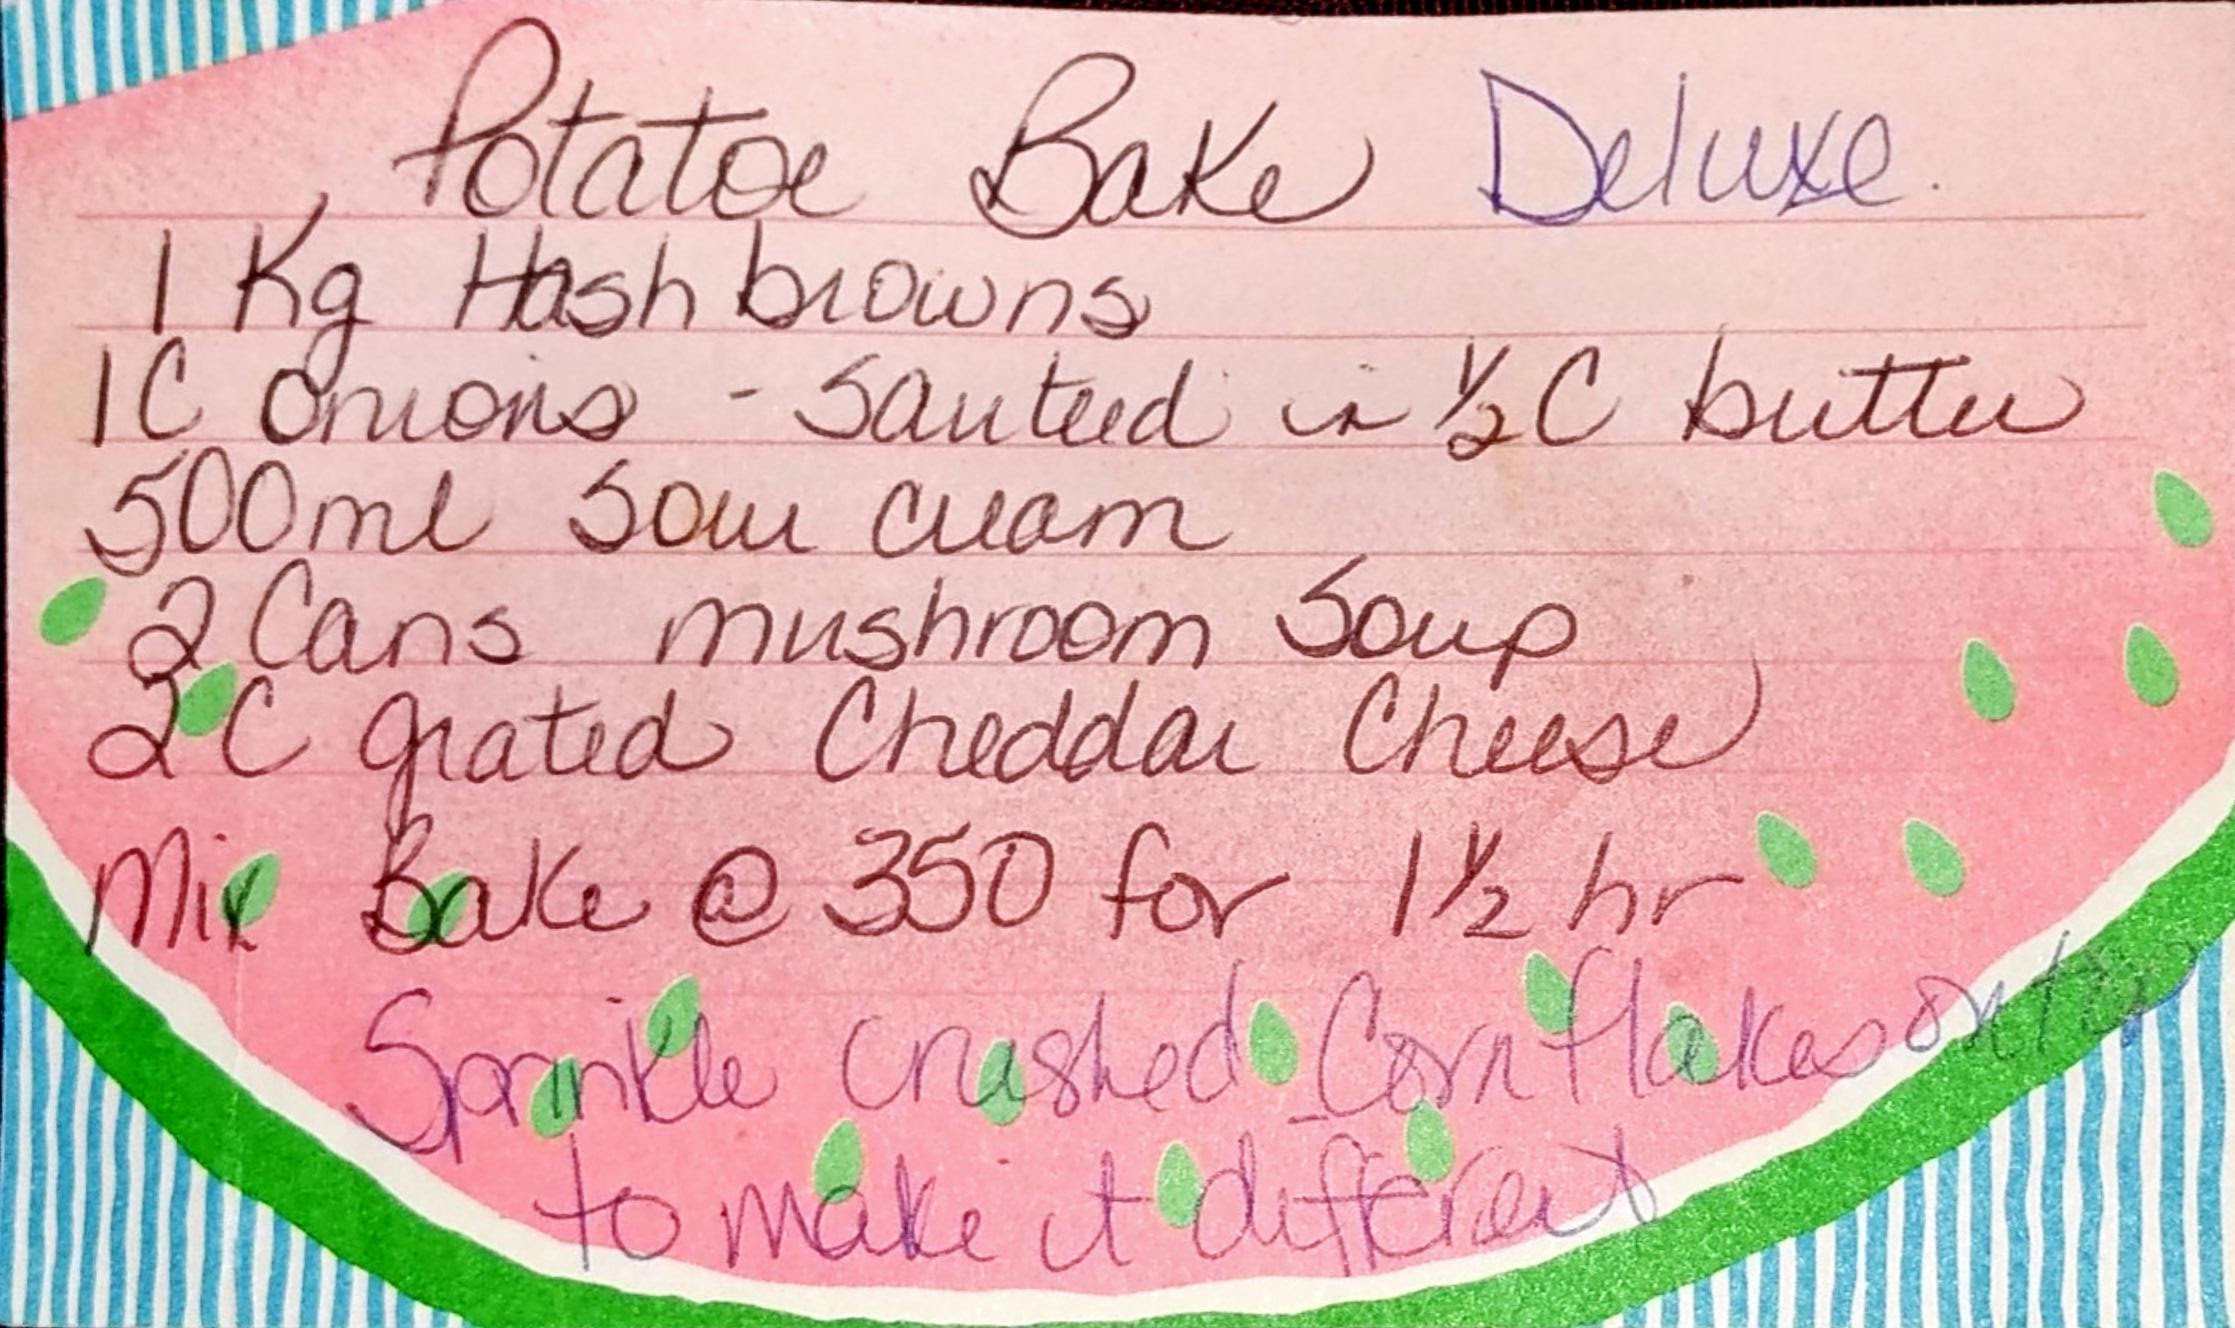 Potatoe Bake Deluxe.
1 Kg Hashbrowns
1C Onions - Sauteed in ½ C butter
500ml Sour Cream
2 Cans mushroom Soup
2C grated Cheddar Cheese
Mix Bake @ 350 for 1½ hr
Sprinkle crushed Corn flakes on top
to make it different